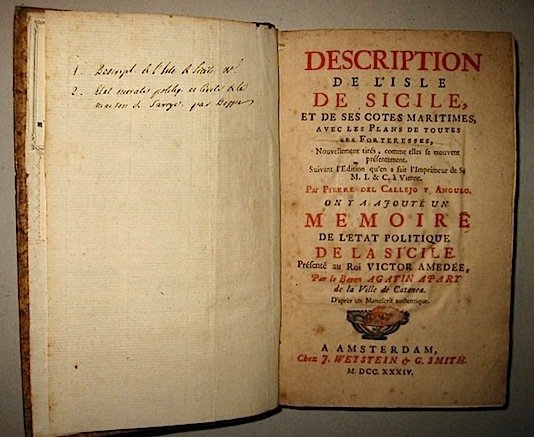 1. Descript. de l'Isle de Sicile &c.
2. Etat morale politiq. et civile de la
maison de Savoye. par
DESCRIPTION
DE L'ISLE
DE SICILE,
ET DE SES COTES MARITIMES,
AVEC LES PLANS DE TOUTES
SES FORTERESSES,
Nouvellement tirés, comme elles se trouvent
présentement.
Suivant l'Edition qu'en a fait l'Imprimeur de Sa
M. I. & C. à Vienne.
Par PIERRE DEL CALLEJO Y ANGULO.
ON Y A AJOUTÉ UN
MEMOIRE
DE L'ETAT POLITIQUE
DE LA SICILE.
Présenté au Roi VICTOR AMEDÉE,
Par le Baron AGATIN APARY
de la Ville de Catanea.
D'après un Manuscrit authentique.
A AMSTERDAM,
Chez J. WETSTEIN & G. SMITH.
M. DCC. XXXIV.